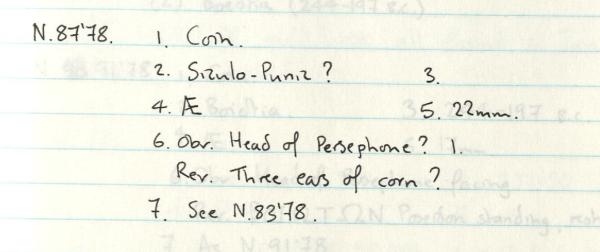 N.87'78. 1. Coin.
2. Siculo-Punic ? 3.
4. Æ 5. 22mm.
6. Obv. Head of Persephone? l.
Rev. Three ears of corn ?
7. See N.83'78.